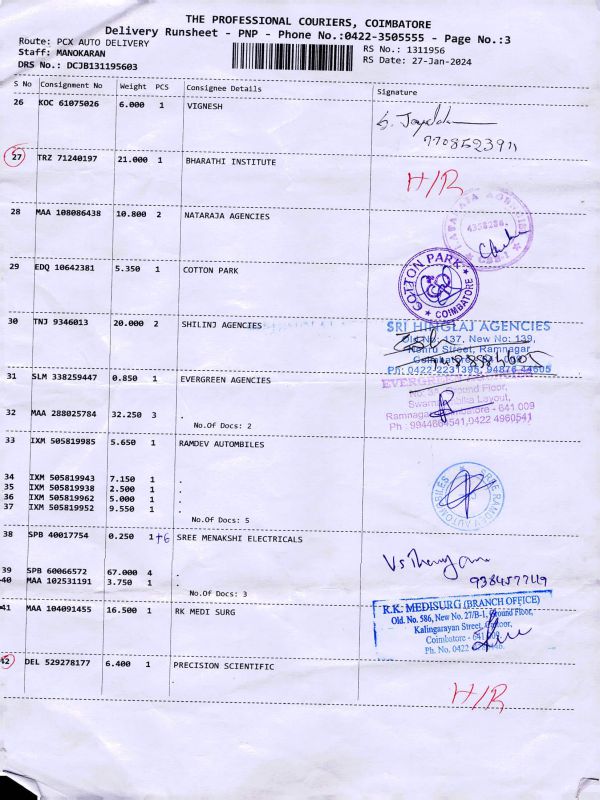 THE PROFESSIONAL COURIERS, COIMBATORE
Delivery Runsheet - PNP - Phone No.:0422-3505555 - Page No.:3
Route: PCX AUTO DELIVERY RS No.: 1311956
Staff: MANOKARAN RS Date: 27-Jan-2024
DRS No.: DCJB131195603
S No Consignment No Weight PCS Consignee Details Signature
26 KOC 61075026 6.000 1 VIGNESH
7708523911
27 TRZ 71240197 21.000 1 BHARATHI INSTITUTE
H/R
28 MAA 108086438 10.800 2 NATARAJA AGENCIES
29 EDQ 10642381 5.350 1 COTTON PARK
COTTON PARK
COIMBATORE
30 TNJ 9346013 20.000 2 SHILINJ AGENCIES
SRI HINGLAJ AGENCIES
Old No: 137, New No: 139,
Street, Ramnagar
Ph: 0422-2231395, 94876 44605
31 SLM 338259447 0.850 1 EVERGREEN AGENCIES
EVERGREEN
Floor,
Layout,
Ramnagar, - 641 009
Ph : 9944664541,0422 4960541
32 MAA 288025784 32.250 3
No.Of Docs: 2
33 IXM 505819985 5.650 1 RAMDEV AUTOMBILES
SREE RAMDEV AUTOMOBILES
34 IXM 505819943 7.150 1 .
35 IXM 505819938 2.500 1 .
36 IXM 505819962 5.000 1 .
37 IXM 505819952 9.550 1 .
No.Of Docs: 5
38 SPB 40017754 0.250 1 +6 SREE MENAKSHI ELECTRICALS
39 SPB 60066572 67.000 4 .
40 MAA 102531191 3.750 1 .
9384577119
No.Of Docs: 3
41 MAA 104091455 16.500 1 RK MEDI SURG
R.K. MEDISURG (BRANCH OFFICE)
Old. No. 586, New No. 27/B-1, Ground Floor,
Kalingarayan Street,
Coimbatore - 641 009.
Ph. No. 0422
42 DEL 529278177 6.400 1 PRECISION SCIENTIFIC
H/R